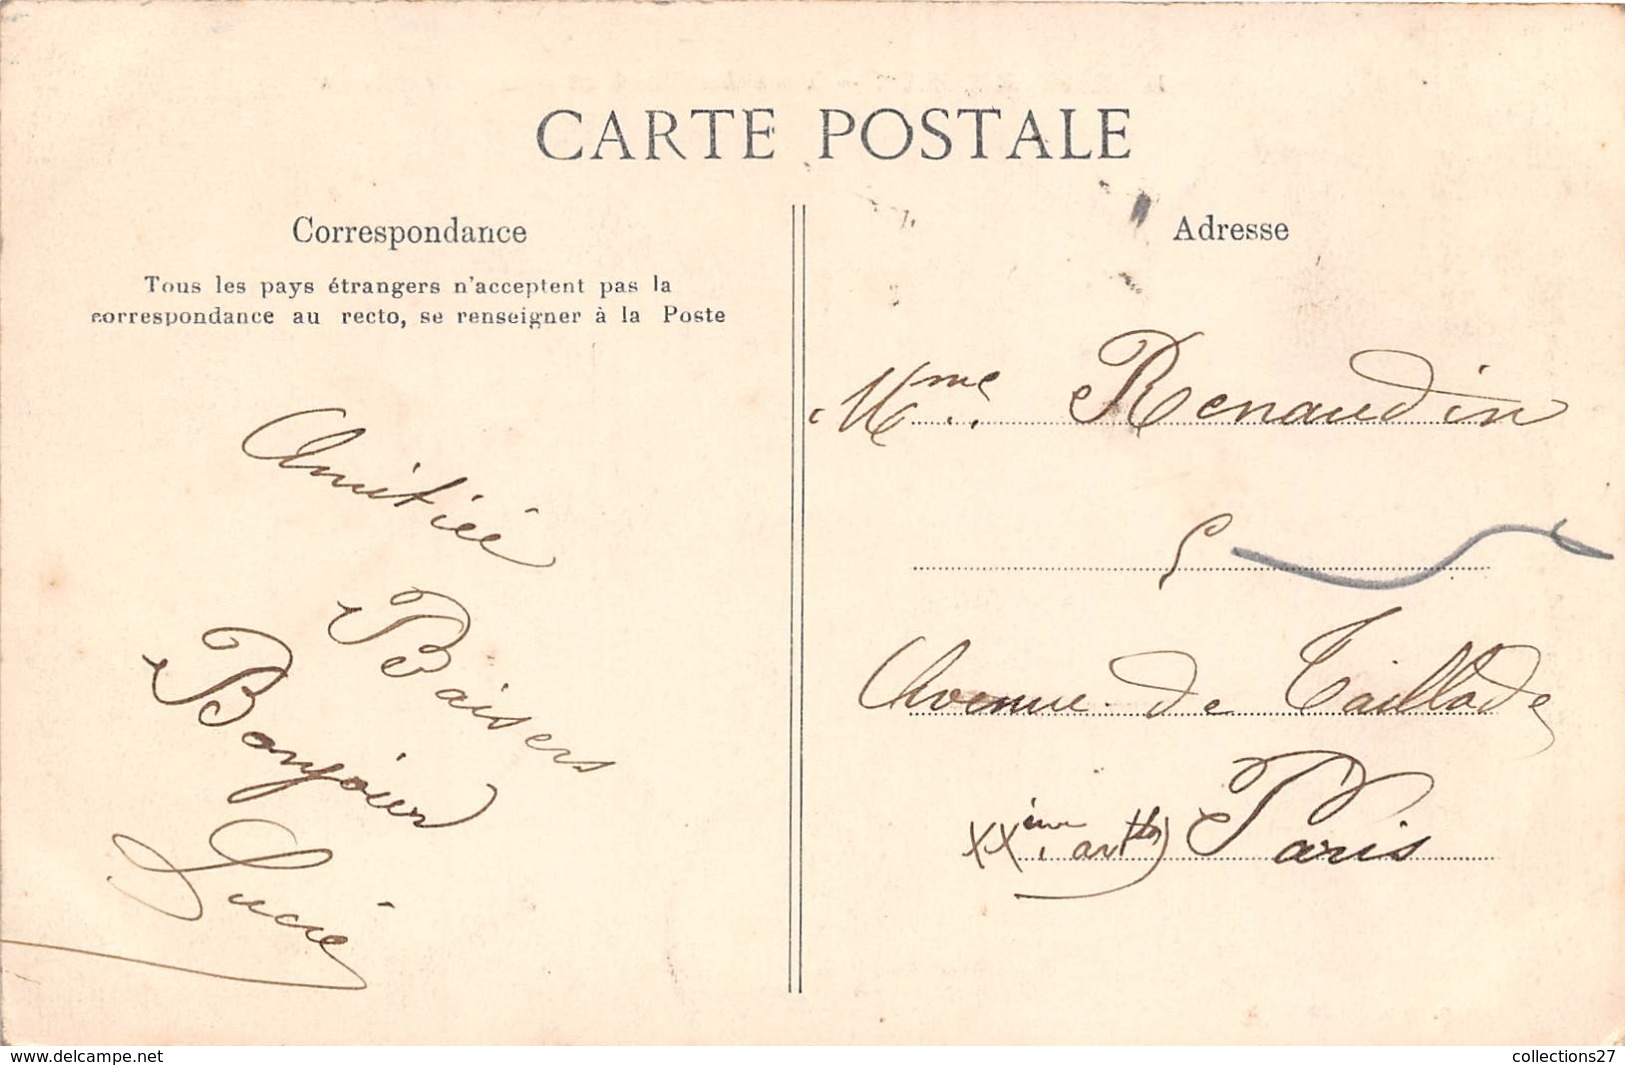 CARTE POSTALE
Correspondance
Tous les pays étrangers n'acceptent pas la
correspondance au recto, se renseigner à la Poste
Amitiée
Baisers
Bonjour
Lucie
Adresse
Mme Renaudin
5
Avenue de Taillade
XXème arr
Paris
www.delcampe.net
collections27